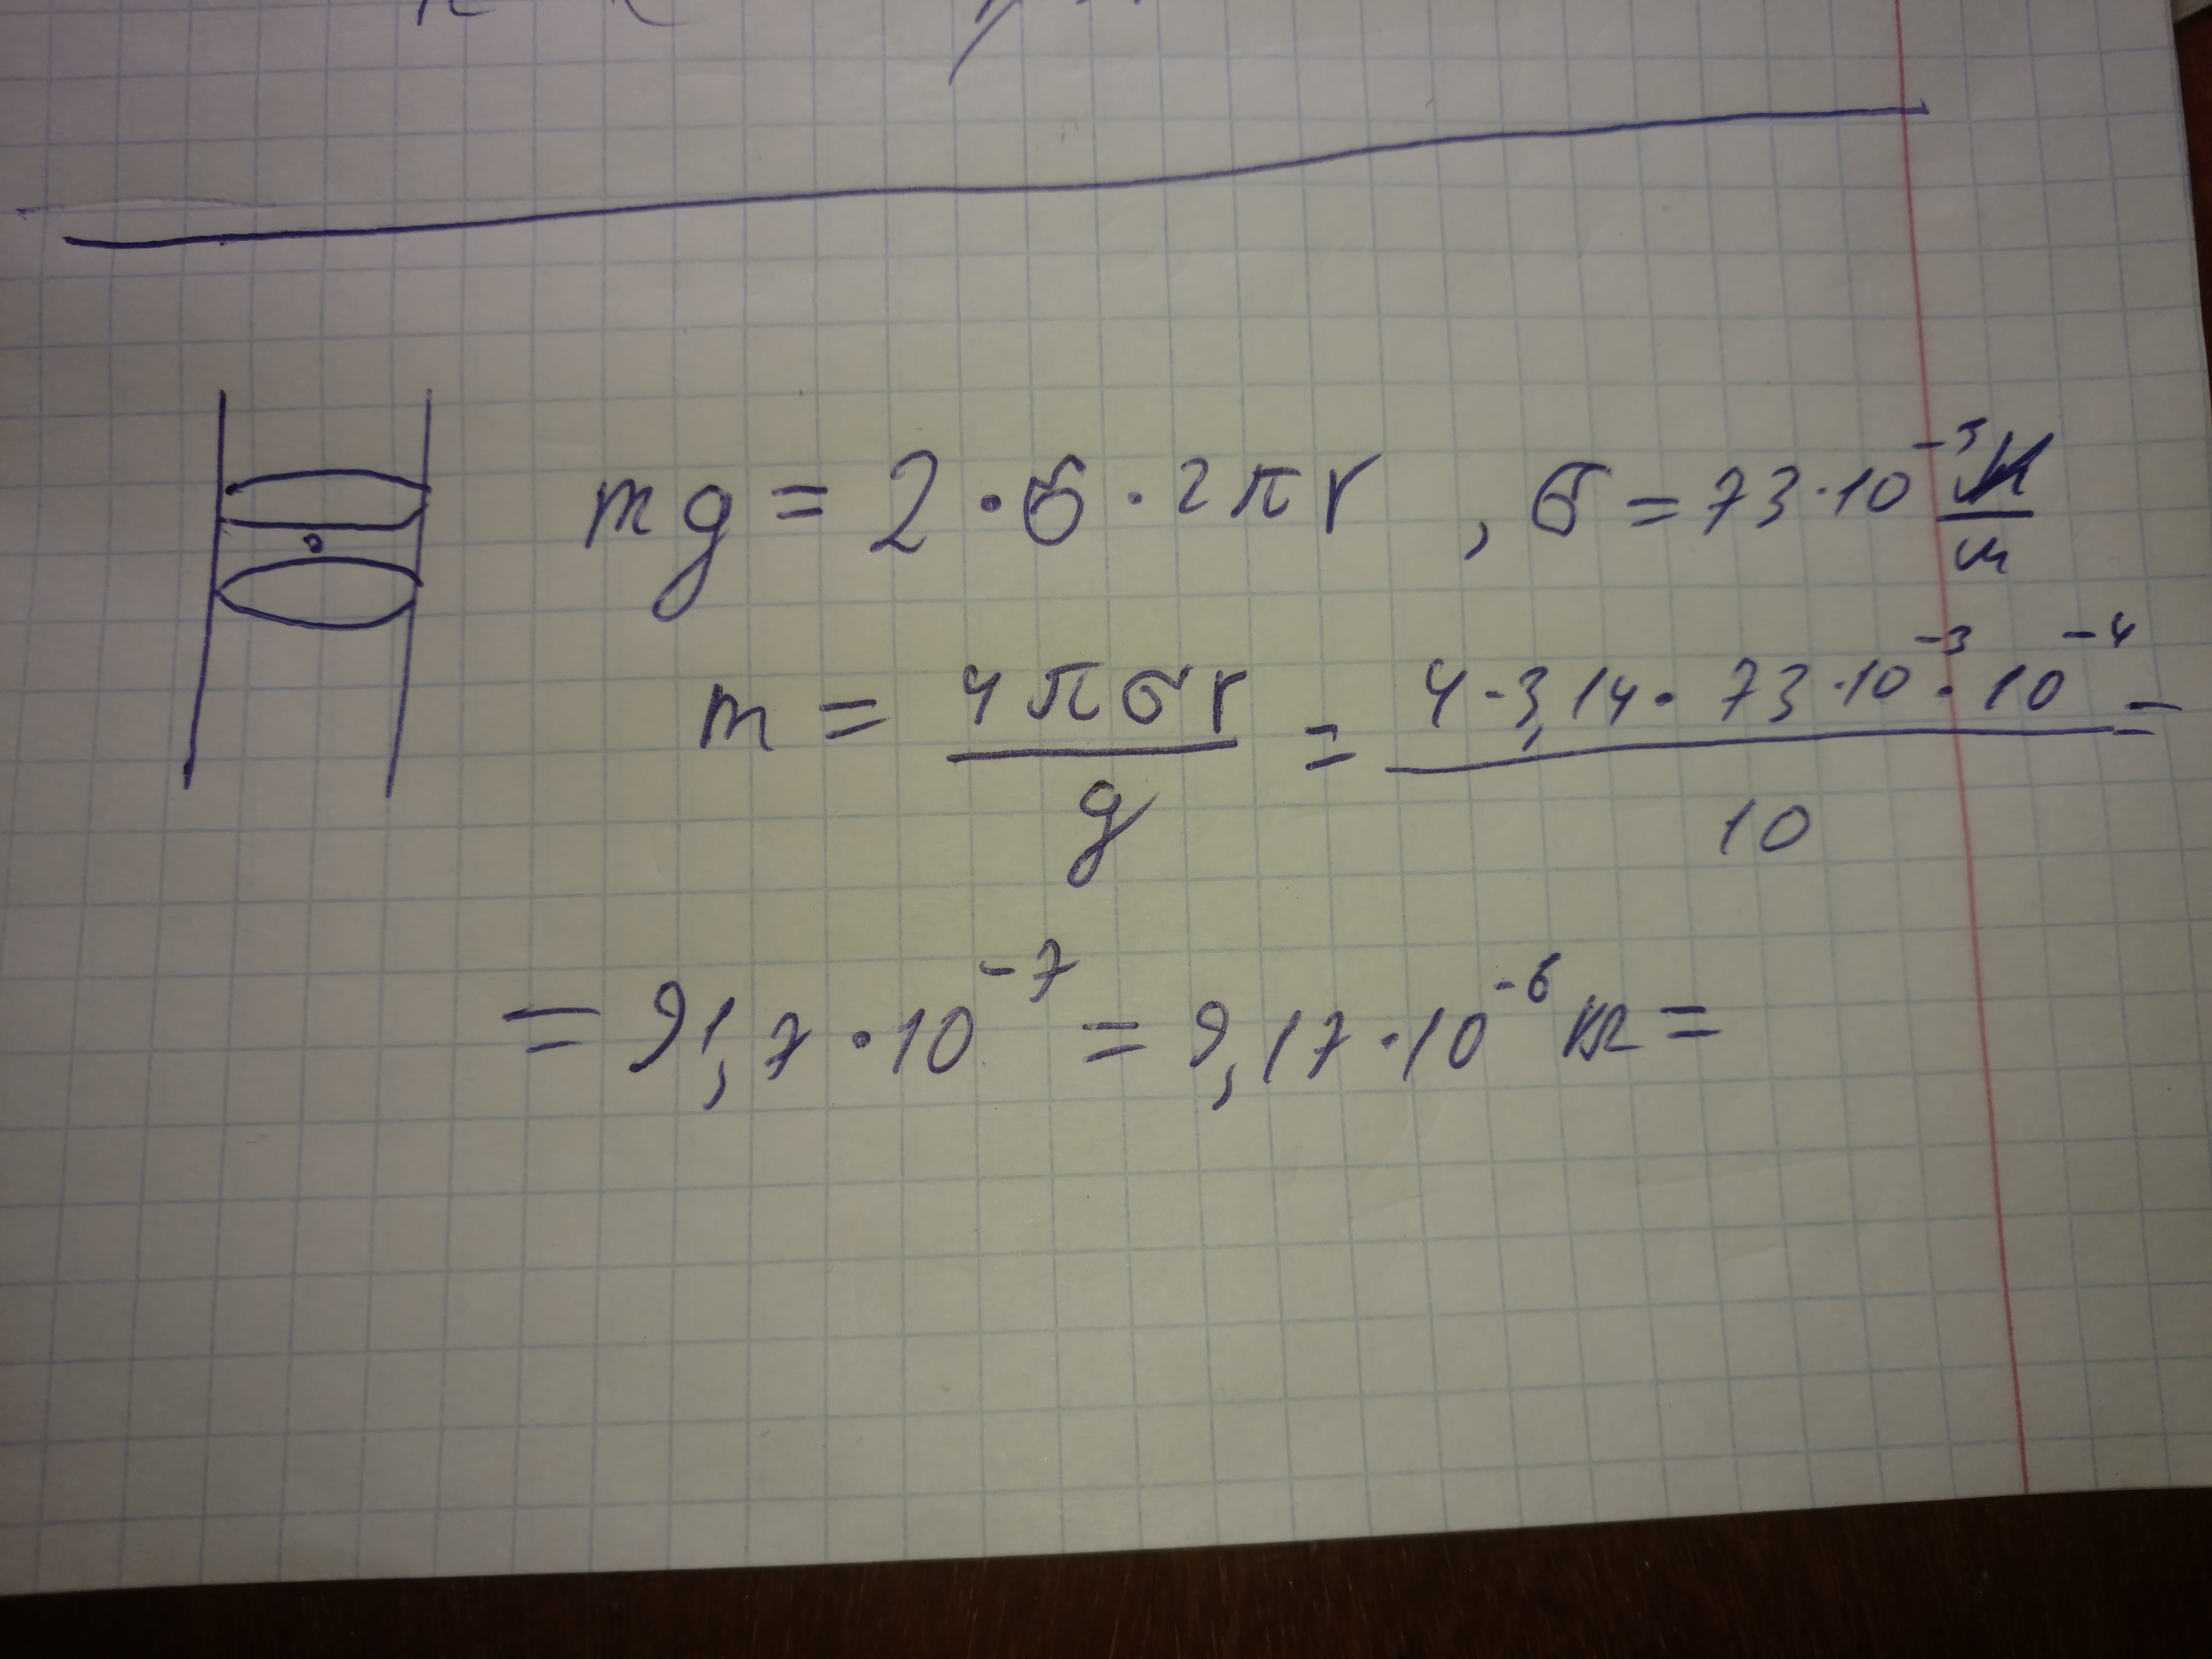 mg = 2 · σ · 2πr , σ = 73 · 10⁻³ Н/м
m = 4πσr/g = 4 · 3,14 · 73 · 10⁻³ · 10⁻⁴/10 =
= 91,7 · 10⁻⁷ = 9,17 · 10⁻⁶ кг =